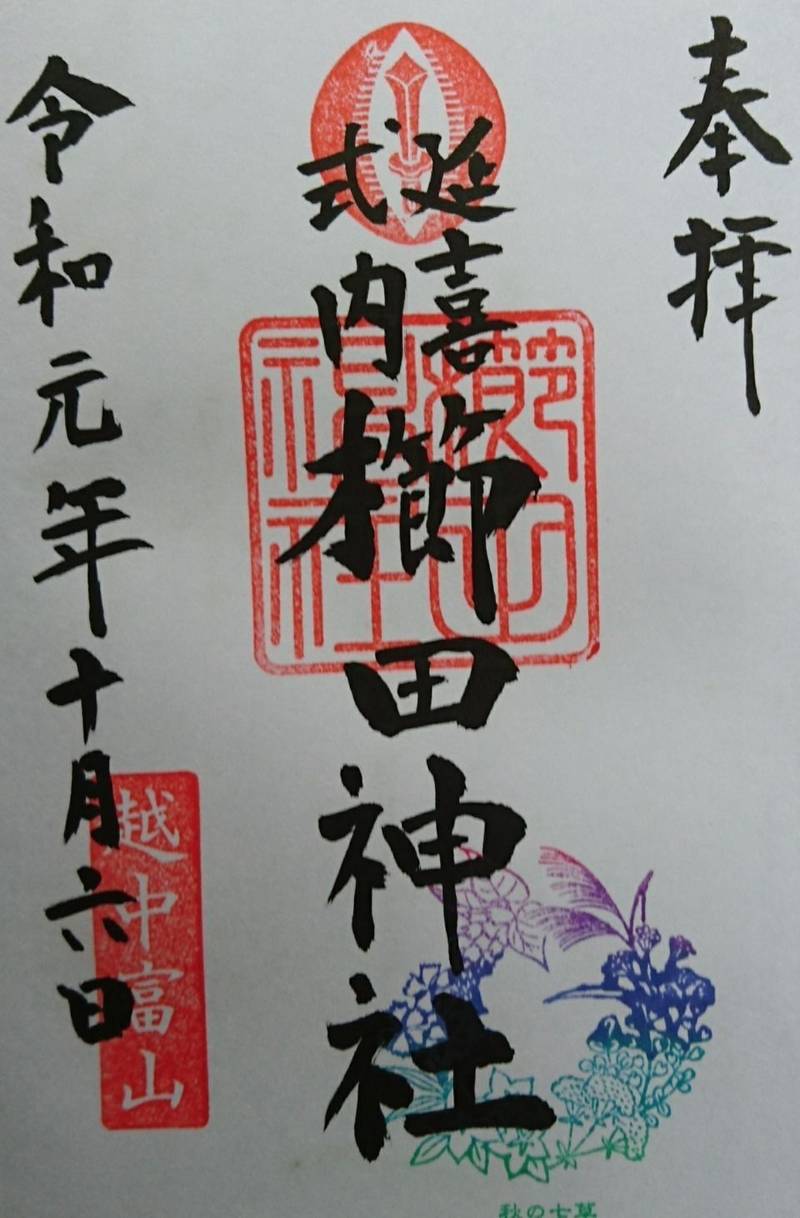 奉拝
延喜
式内
櫛田神社
令和元年十月六日
越中富山
秋の七草